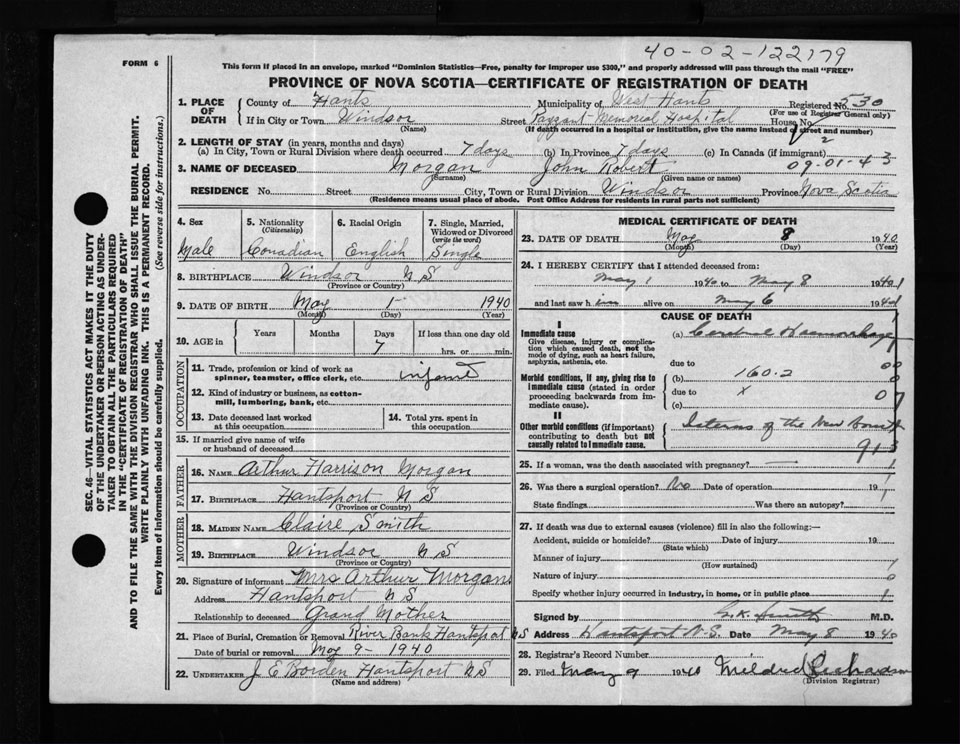 40-02-122179
FORM 6
This form if placed in an envelope, marked "Dominion Statistics—Free, penalty for improper use $300," and properly addressed will pass through the mail "FREE"
PROVINCE OF NOVA SCOTIA—CERTIFICATE OF REGISTRATION OF DEATH
1. PLACE OF DEATH County of Hants Municipality of West Hants Registered No. 530
(For use of Registrar General only)
If in City or Town Windsor Street Payzant Memorial Hospital House No.
(Name) (If death occurred in a hospital or institution, give the name instead of street and number)
2. LENGTH OF STAY (in years, months and days) 2
(a) In City, Town or Rural Division where death occurred 7 days (b) In Province 7 days (c) In Canada (if immigrant)
3. NAME OF DECEASED Morgan John Robert 09-01-43
(Surname) (Given name or names)
RESIDENCE No. Street City, Town or Rural Division Windsor Province Nova Scotia
(Residence means usual place of abode. Post Office Address for residents in rural parts not sufficient)
SEC. 46—VITAL STATISTICS ACT MAKES IT THE DUTY
OF THE UNDERTAKER OR PERSON ACTING AS UNDER-
TAKER TO OBTAIN ALL THE PARTICULARS REQUIRED
IN THE "CERTIFICATE OF REGISTRATION OF DEATH"
AND TO FILE THE SAME WITH THE DIVISION REGISTRAR WHO SHALL ISSUE THE BURIAL PERMIT.
WRITE PLAINLY WITH UNFADING INK. THIS IS A PERMANENT RECORD.
Every item of information should be carefully supplied. (See reverse side for instructions.)
4. Sex 5. Nationality 6. Racial Origin 7. Single, Married,
(Citizenship) Widowed or Divorced
(write the word)
Male Canadian English Single
8. BIRTHPLACE Windsor N S
(Province or Country)
9. DATE OF BIRTH May 1 1940
(Month) (Day) (Year)
10. AGE in Years Months Days If less than one day old
7 hrs. or min.
OCCUPATION
11. Trade, profession or kind of work as
spinner, teamster, office clerk, etc. infant
12. Kind of industry or business, as cotton-
mill, lumbering, bank, etc.
13. Date deceased last worked
at this occupation
14. Total yrs. spent in
this occupation
15. If married give name of wife
or husband of deceased
FATHER
16. NAME Arthur Harrison Morgan
17. BIRTHPLACE Hantsport N S
(Province or Country)
MOTHER
18. MAIDEN NAME Claire Smith
19. BIRTHPLACE Windsor N S
(Province or Country)
20. Signature of informant Mrs Arthur Morgan
Address Hantsport N S
Relationship to deceased Grand Mother
21. Place of Burial, Cremation or Removal River Bank Hantsport N S
Date of burial or removal May 9 - 1940
22. UNDERTAKER J E Borden Hantsport N S
(Name and address)
MEDICAL CERTIFICATE OF DEATH
23. DATE OF DEATH May 8 1940
(Month) (Day) (Year)
24. I HEREBY CERTIFY that I attended deceased from:
May 1 1940 to May 8 1940
and last saw him alive on May 6 1940
CAUSE OF DEATH
I
Immediate cause
Give disease, injury or complica-
tion which caused death, not the
mode of dying, such as heart failure,
asphyxia, asthenia, etc.
(a) Cerebral Haemorrhage
due to
Morbid conditions, if any, giving rise to
immediate cause (stated in order
proceeding backwards from im-
mediate cause).
(b) 160.2
due to x
(c)
II
Other morbid conditions (if important)
contributing to death but not
causally related to immediate cause.
of the New Born
25. If a woman, was the death associated with pregnancy?
26. Was there a surgical operation? No Date of operation 19
State findings Was there an autopsy?
27. If death was due to external causes (violence) fill in also the following:—
Accident, suicide or homicide? Date of injury 19
(State which)
Manner of injury
(How sustained)
Nature of injury
Specify whether injury occurred in industry, in home, or in public place
Signed by M.D.
Address Hantsport N.S. Date May 8 1940
28. Registrar's Record Number
29. Filed May 9 1940 Mildred Richardson
(Division Registrar)